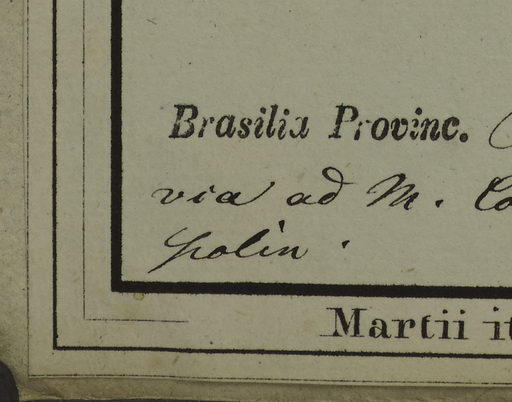 Brasilia Provinc.
via ad M. Co
polin.
Martii it